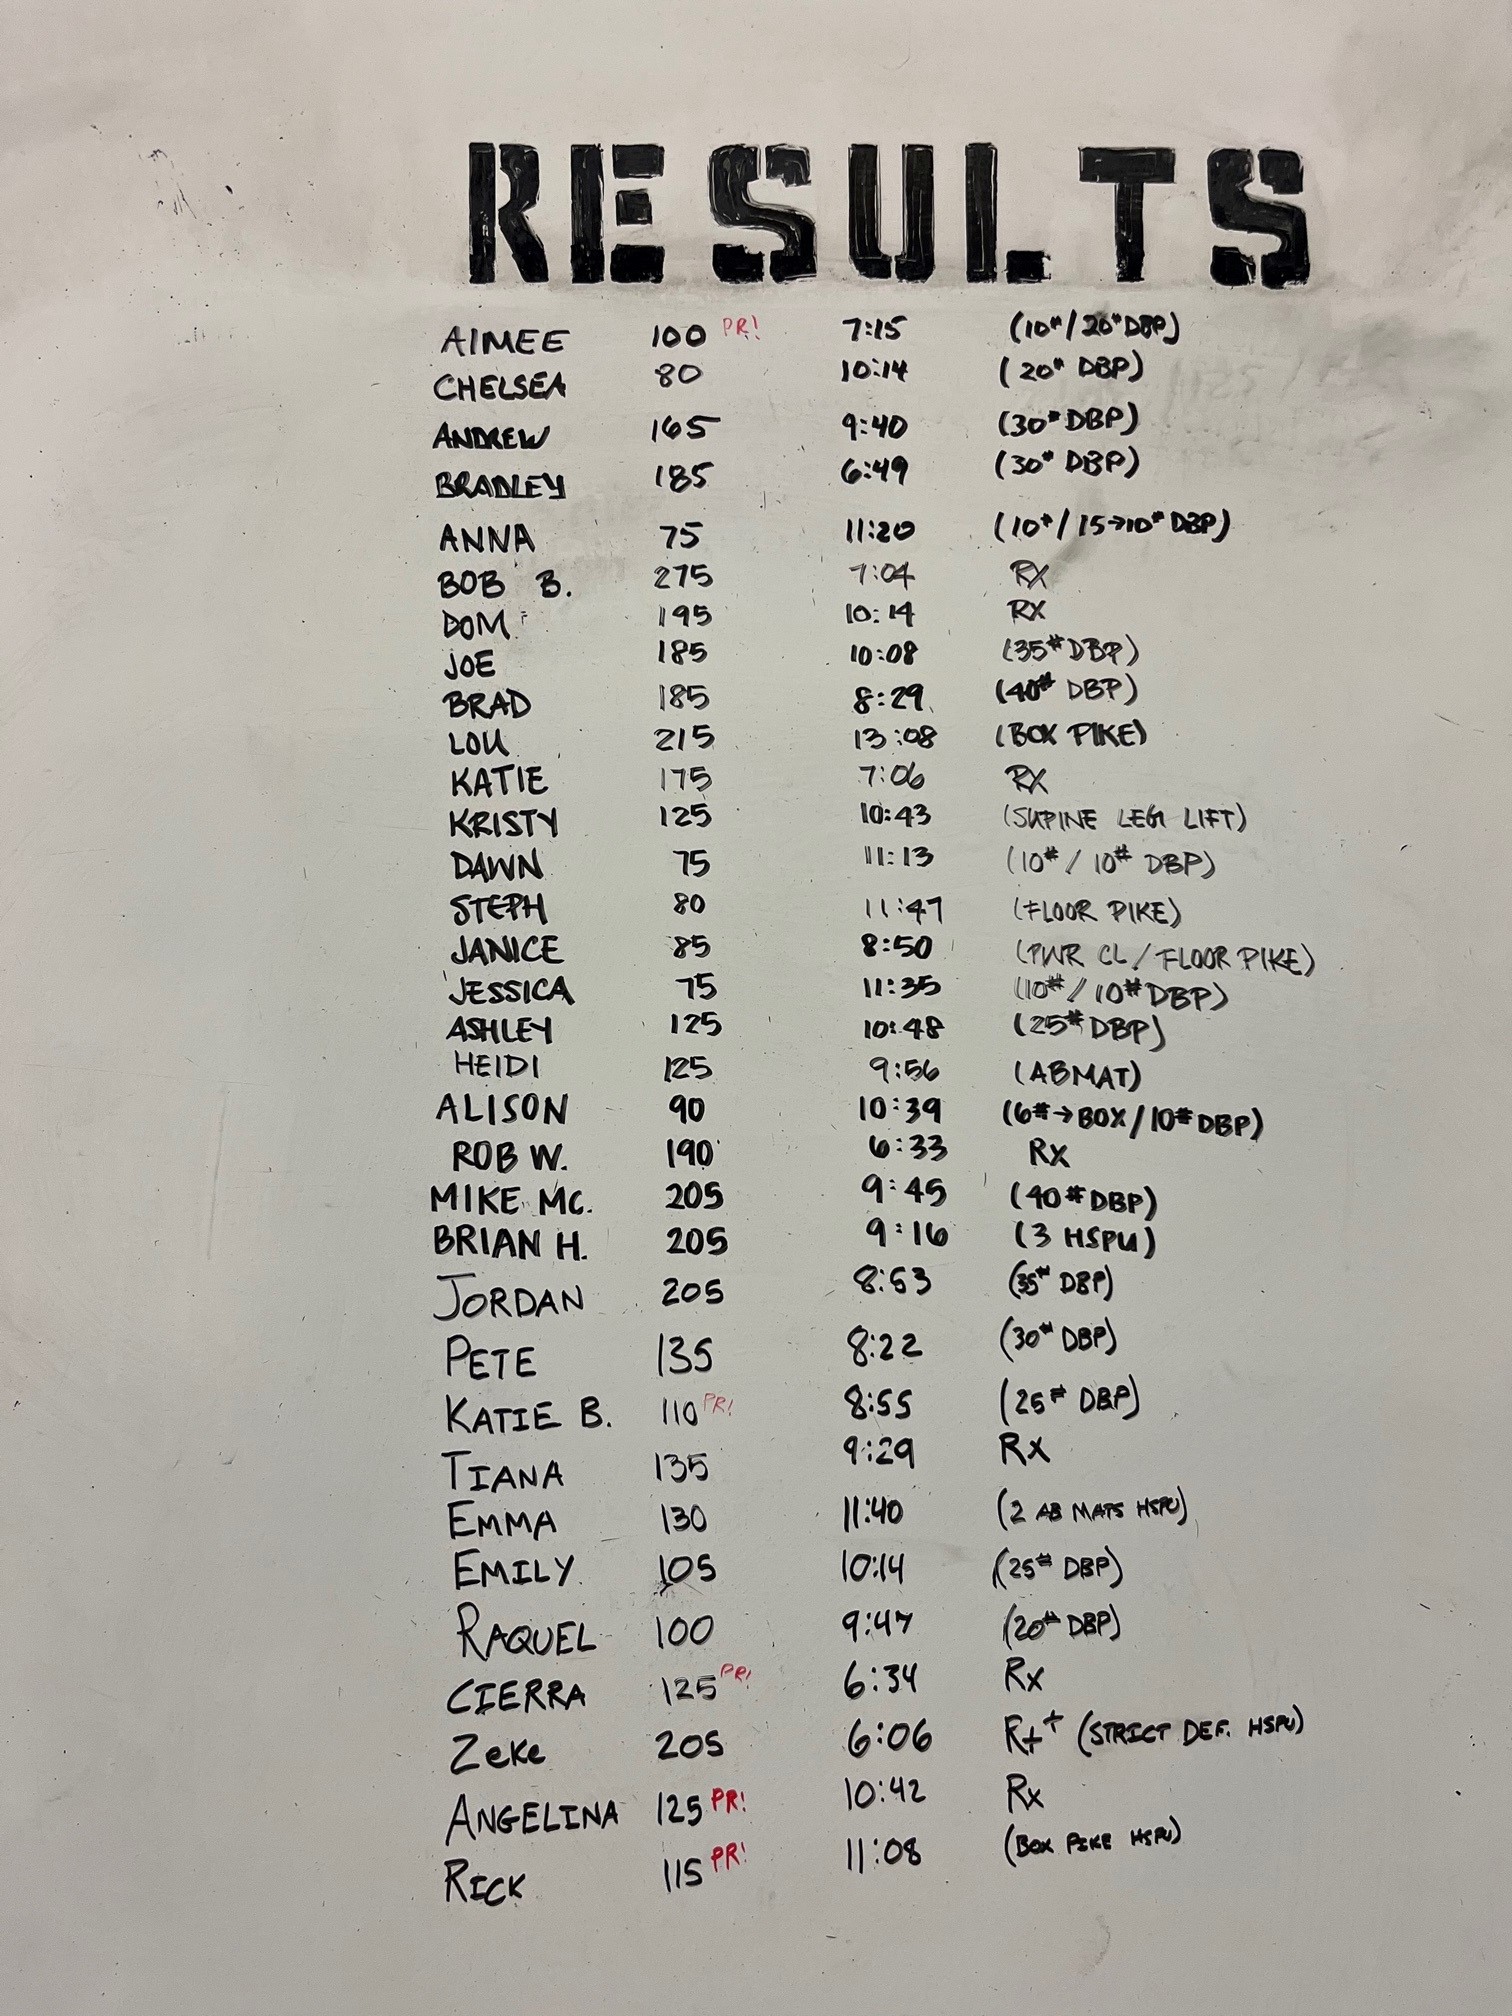 RESULTS
AIMEE 100 PR! 7:15 (10#/20# DBP)
CHELSEA 80 10:14 (20# DBP)
ANDREW 165 9:40 (30# DBP)
BRADLEY 185 6:49 (30# DBP)
ANNA 75 11:20 (10#/15→10# DBP)
BOB B. 275 7:04 RX
DOM 195 10:14 RX
JOE 185 10:08 (35# DBP)
BRAD 185 8:29 (40# DBP)
LOU 215 13:08 (BOX PIKE)
KATIE 175 7:06 RX
KRISTY 125 10:43 (SUPINE LEG LIFT)
DAWN 75 11:13 (10# / 10# DBP)
STEPH 80 11:47 (FLOOR PIKE)
JANICE 85 8:50 (PWR CL / FLOOR PIKE)
JESSICA 75 11:35 (10# / 10# DBP)
ASHLEY 125 10:48 (25# DBP)
HEIDI 125 9:56 (ABMAT)
ALISON 90 10:39 (6#→BOX/10# DBP)
ROB W. 190 6:33 Rx
MIKE MC. 205 9:45 (40# DBP)
BRIAN H. 205 9:16 (3 HSPU)
JORDAN 205 8:53 (35# DBP)
PETE 135 8:22 (30# DBP)
KATIE B. 110 PR! 8:55 (25# DBP)
TIANA 135 9:29 Rx
EMMA 130 11:40 (2 AB MATS HSPU)
EMILY 105 10:14 (25# DBP)
RAQUEL 100 9:47 (20# DBP)
CIERRA 125 PR! 6:34 Rx
ZeKe 205 6:06 Rx+ (STRICT DEF. HSPU)
ANGELINA 125 PR! 10:42 Rx
RICK 115 PR! 11:08 (BOX PIKE HSPU)